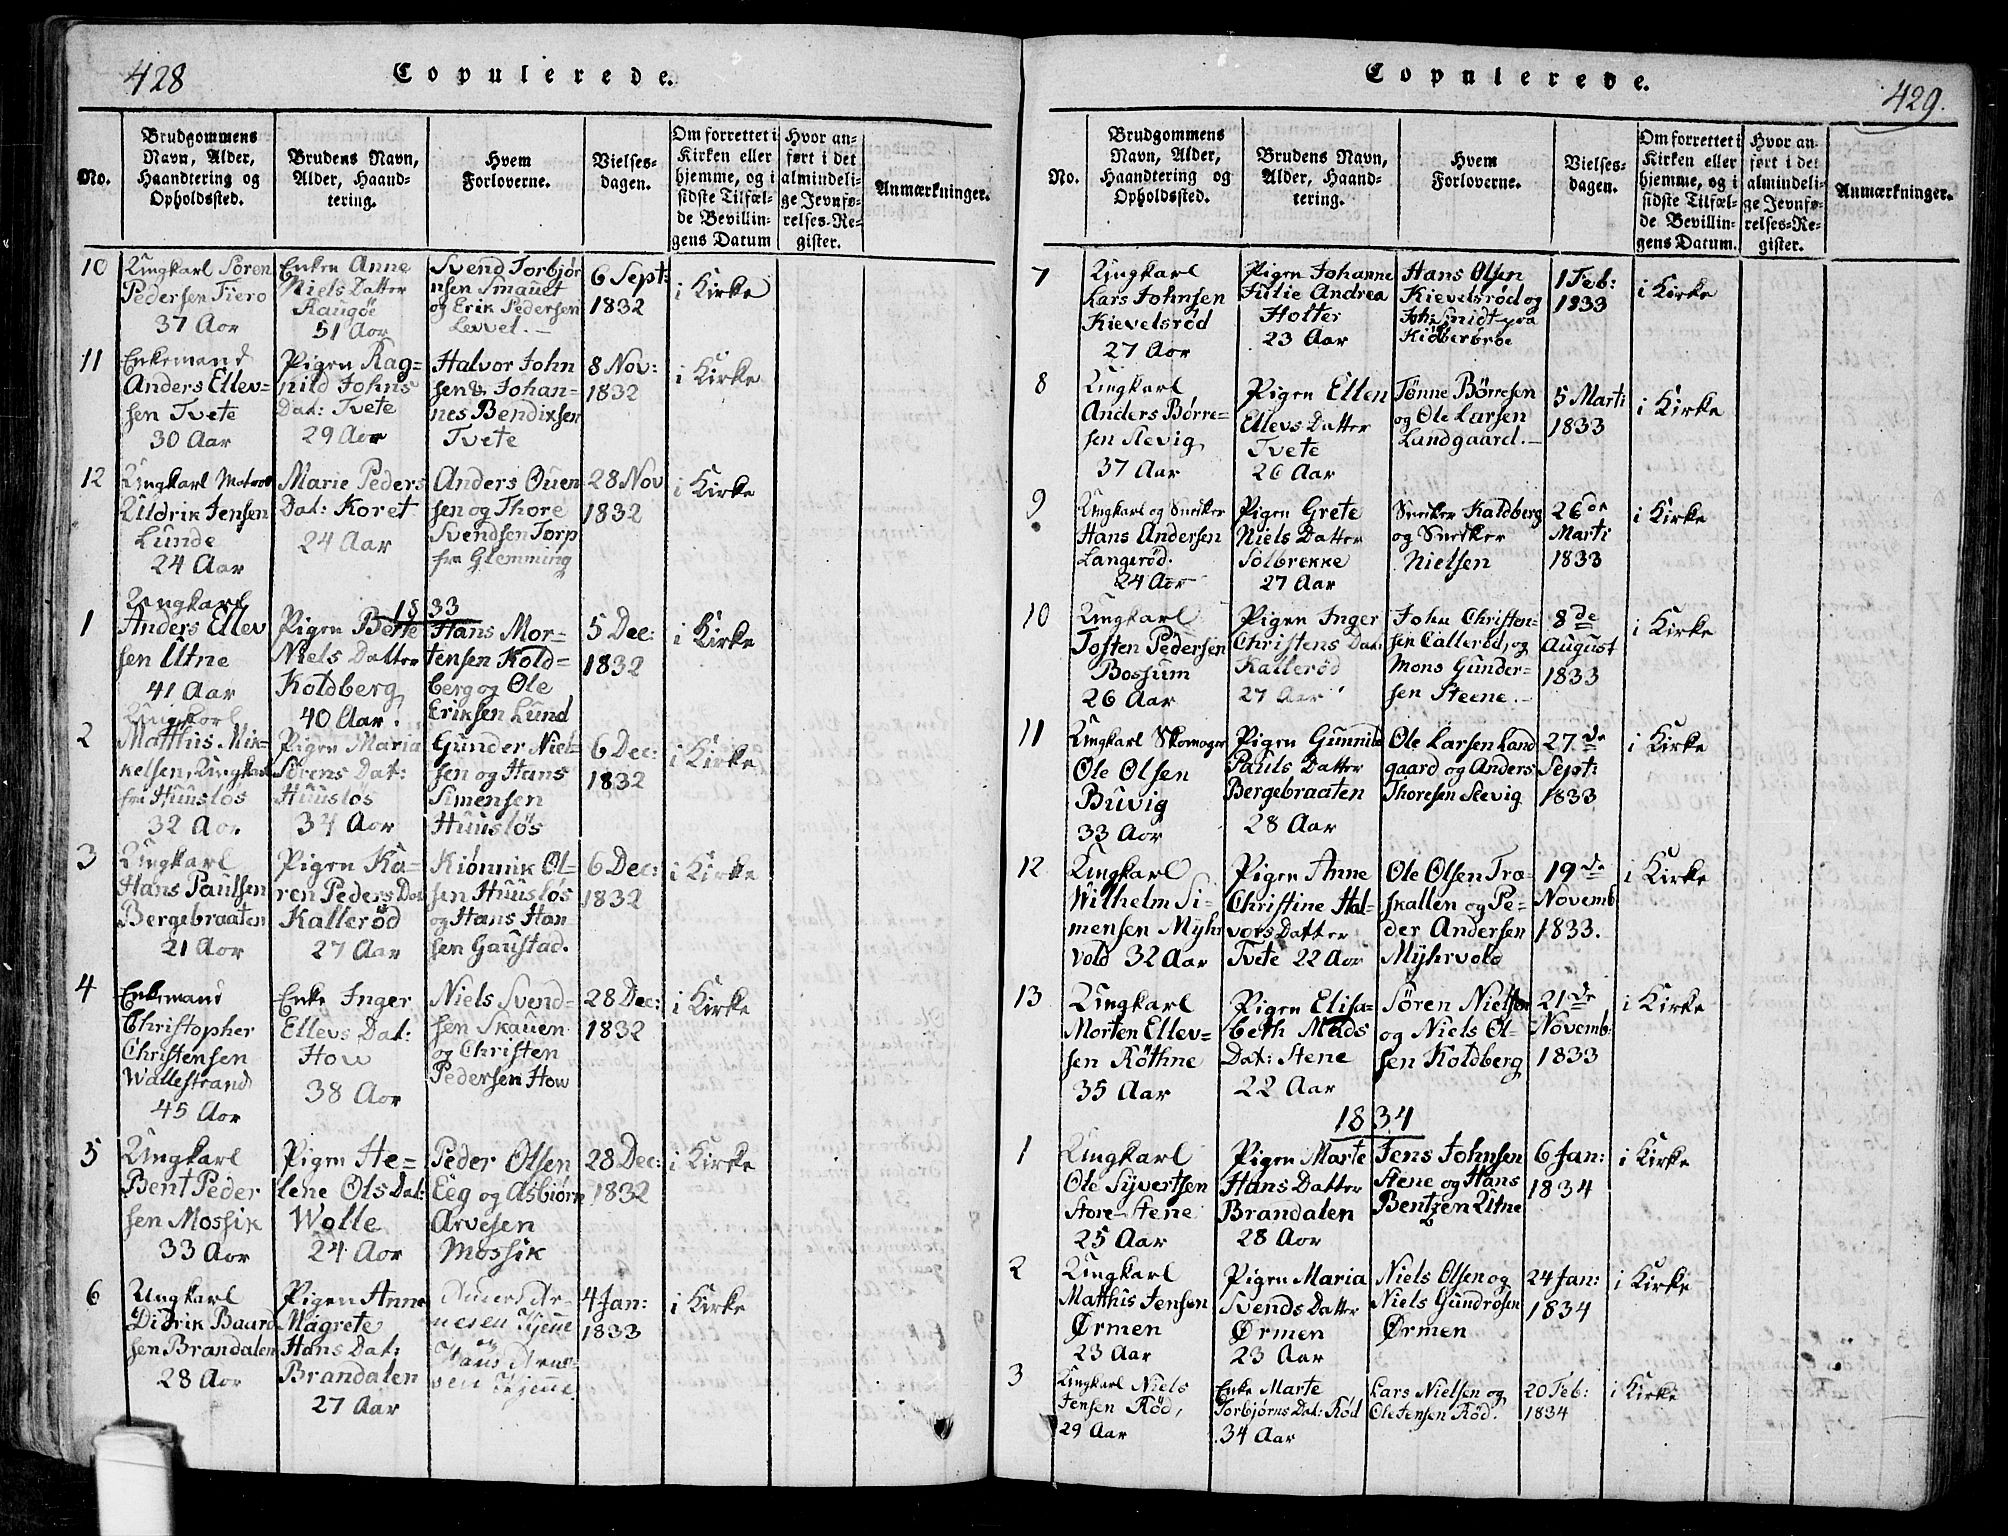 428
Copulerede.
No.
Brudgommens
Navn, Alder,
Haandtering og
Opholdssted.
Brudens Navn,
Alder, Haand=
tering.
Hvem
Forloverne.
Vielses=
dagen.
Om forrettet i
Kirken eller
hjemme, og i
sidste Tilfæl=
de Bevillin=
gens Datum
Hvor an=
ført i det
almindeli=
ge Jevnfø=
relses=Re=
gister.
Anmærkninger.
10
Ungkarl Søren
Pedersen Fiero
37 Aar
Enken Anne
Niels Datter
Raugöe
51 Aar
Svend Torbjør
nsen Smauet
og Erik Pedersen
Levvel.
6 Sept:
1832
i Kirke
11
Enkemand
Anders Ellev=
sen Tvete
30 Aar
Pigen Rag=
nild Johns
Dat: Tvete
29 Aar
Halvor John
sen & Johan=
nes Bendixsen
Tvete
8 Nov:
1832
i Kirke
12
Ungkarl Matros
Uldrik Jensen
Lunde
24 Aar
Marie Peders
Dat: Koret
24 Aar
Anders Ouen
sen og Thore
Svendsen Torp
fra Glemming
28 Nov
1832
i Kirke
1833
1
Ungkarl
Anders Ellev
sen Utne
41 Aar
Pigen Bette
Niels Datter
Koldberg
40 Aar.
Hans Mor=
tensen Kold=
berg og Ole
Eriksen Lund
5 Dec:
1832
i Kirke
2
Ungkarl
Matthis Mik=
kelsen, Ungkarl
fra Huusløs
32 Aar
Pigen Maria
Sørens Dat:
Huusløs
34 Aar
Gunder Niel=
sen og Hans
Simensen
Huusløs
6 Dec:
1832
i Kirke
3
Ungkarl
Hans Paulsen
Bergebraaten
21 Aar
Pigen Ka=
ren Peders Dat
Kallerød
27 Aar
Kiønnik Ol=
sen Huusløs
og Hans Han
sen Gaustad.
6 Dec:
1832
i Kirke
4
Enkemand
Christopher
Christensen
Wallestrand
45 Aar
Enke Inger
Ellevs Dat:
How
38 Aar
Niels Svend=
sen Skauen
og Christen
Pedersen How
28 Dec:
1832
i Kirke
5
Ungkarl
Bent Peder
sen Mossik
33 Aar
Pigen He=
lene Ols Dat:
Wolle
24 Aar
Peder Olsen
Eeg og Asbiørn
Arvesen
Mossik
28 Dec:
1832
i Kirke
6
Ungkarl
Didrik Baard
sen Brandalen
28 Aar
Pigen Anne
Magrete
Hans Dat:
Brandalen
27 Aar
4 Jan:
1833
i Kirke
Copulerede.
429.
No.
Brudgommens
Navn, Alder,
Haandtering og
Opholdssted.
Brudens Navn,
Alder, Haand=
tering.
Hvem
Forloverne.
Vielses=
dagen.
Om forrettet i
Kirken eller
hjemme, og i
sidste Tilfæl=
de Bevillin=
gens Datum.
Hvor an=
ført i det
almindeli=
ge Jevnfø=
relses=Re=
gister.
Anmærkninger.
7
Ungkarl
Lars Johnsen
Kievelsrød
27 Aar
Pigen Johanne
Julie Andrea
Holter
23 Aar
Hans Olsen
Kievelsrød og
Joh: Smidt paa
1 Feb:
1833
i Kirke
8
Ungkarl
Anders Børre=
sen Revig
37 Aar
Pigen Ellen
Ellevs Datter
Tvete
26 Aar
Tønne Börresen
og Ole Larsen
Landgaard.
5 Mart:
1833
i Kirke
9
Ungkarl og Snedker
Hans Andersen
Langerød.
24 Aar
Pigen Grete
Niels Datter
Solbrekke
27 Aar
Snedker Kaldberg
og Snedker
Nielsen
26de
Marti
1833
i Kirke
10
Ungkarl
Tosten Pedersen
Bossum
26 Aar
Pigen Inger
Christens Dat:
Kallerød
27 Aar
John Christen=
sen Callerød, og
Mons Gunder=
sen Steene.
8de
August
1833
i Kirke
11
Ungkarl Skomager
Ole Olsen
Buvig
33 Aar
Pigen Gunnild
Pauls Datter
Bergebraaten
28 Aar
Ole Larsen Land
gaard og Anders
Thoresen Seevig
27de
Sept:
1833
i Kirke
12
Ungkarl
Wilhelm Si=
mensen Myhr
vold 32 Aar
Pigen Anne
Christine Hal=
vors Datter
Tvete 22 Aar
Ole Olsen Tra=
skallen og Pe=
der Andersen
Myhrvold
19de
Novemb
1833.
i Kirke
13
Ungkarl
Morten Ellev=
sen Röthne
35 Aar
Pigen Elisa=
beth Mads
Dat: Stene
22 Aar
Søren Nielsen
og Niels Ol=
sen Koldberg
21de
Novemb:
1833
i Kirke
1834
1
Ungkarl
Ole Syvertsen
Store-Stene
25 Aar
Pigen Marte
Hans Datter
Brandalen
28 Aar
Jens Johnsen
Stene og Hans
Bentzen Utne
6 Jan:
1834
i Kirke
2
Ungkarl
Matthis Jensen
Ørmen
23 Aar
Pigen Maria
Svends Datter
Ørmen
23 Aar
Niels Olsen og
Niels Gundrosen
Ørmen
24 Jan:
1834
i Kirke
3
Ungkarl Niels
Jensen Rød,
29 Aar
Enke Marte
Torbjørns Dat: Rød
34 Aar
Lars Nielsen og
Ole Jensen Rød.
20 Feb:
1834
i Kirke